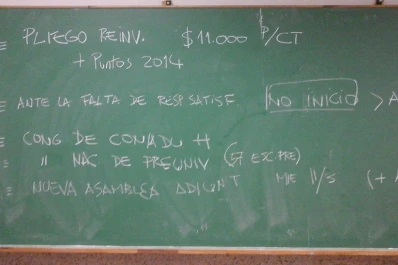 ≡ PLIEGO REINV. $11.000 P/CT
+ PUNTOS 2014
≡ ANTE LA FALTA DE RESP SATISF. NO INICIO > A
≡ CONG DE CONADU H
≡ " NAC DE PREUNIV (57 ESC PRE)
≡ NUEVA ASAMBLEA ADIUNT MIE 11/5 (+